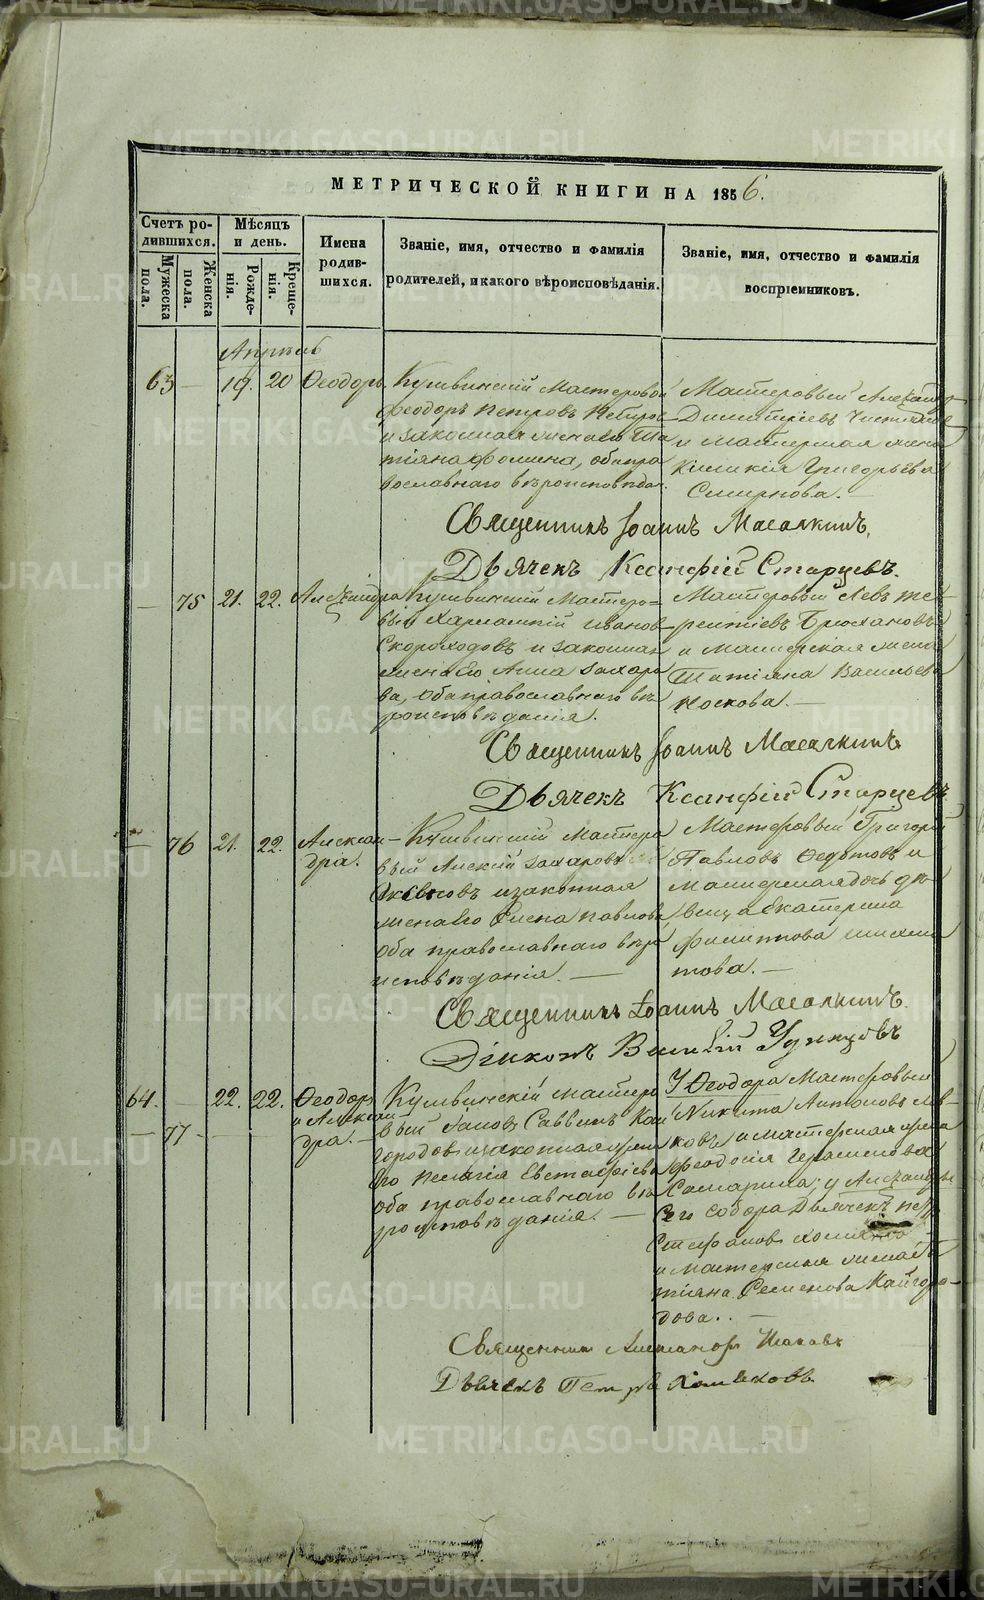 МЕТРИЧЕСКОЙ КНИГИ НА 1856.
Счетъ ро-
дившихся.
Мужеска
пола.
Женска
пола.
Мѣсяцъ
и день.
Рожде-
нія.
Креще-
нія.
Имена
родив-
шихся.
Званіе, имя, отчество и фамилія
родителей, и какого вѣроисповѣданія.
Званіе, имя, отчество и фамилія
воспріемниковъ.
Апрѣль
63 — 19. 20 Ѳеодоръ.
Кушвинскій Мастеровой
Феодоръ Петровъ
и законная жена его Та-
тіяна Фомина, оба пра
вославнаго вѣроисповѣдан.
Мастеровый Александръ
Димитріевъ
и мастерская жена
Киликія Григорьева
Смирнова. —
Священникъ Іоаннъ Масалкинъ.
Дьячекъ Ксанфій Старцевъ.
— 75 21. 22. Александра
Кушвинскій Мастеро-
вый Харлампій Иванов
Скороходовъ и законная
жена Его Анна Захаро
ва, оба православнаго вѣ
роисповѣданія.
Мастеровый Левъ Те-
рентіевъ Брюхановъ
и Мастерская жена
Татіяна Васильева
Носкова. —
Священникъ Іоаннъ Масалкинъ.
Дьячекъ Ксанфій Старцевъ
— 76 21. 22. Алексан-
дра.
Кушвинскій Мастеро
вый Алексій Захаровъ
и законная
жена Его Елена Павлова
оба православнаго вѣро
исповѣданія. —
Мастеровый Григорій
Павловъ Федотовъ и
Мастерская дочь дѣ-
вица Екатерина
Филиппова
това. —
Священникъ Іоаннъ Масалкинъ.
Діаконъ Василій Удинцовъ
64. — 22. 22. Ѳеодоръ
и Алексан-
— 77 — дра. —
Кушвинскій мастеро
вый Іаковъ Саввинъ Кай
городовъ и законная жена
его Пелагія Евстафіева
оба православнаго вѣ
роисповѣданія. —
У Ѳеодора Мастеровый
Никита Антоновъ
ковъ и мастерская жена
Феодосія Герасимова
Самарина; у Александры
Сего собора Дьячекъ Петръ
Стефановъ Хомяковъ
и мастерская жена Та
тіяна Семенова Кайгоро-
дова.. —
Священник Александр Попов
Дьячекъ Петръ Хомяковъ
METRIKI.GASO-URAL.RU